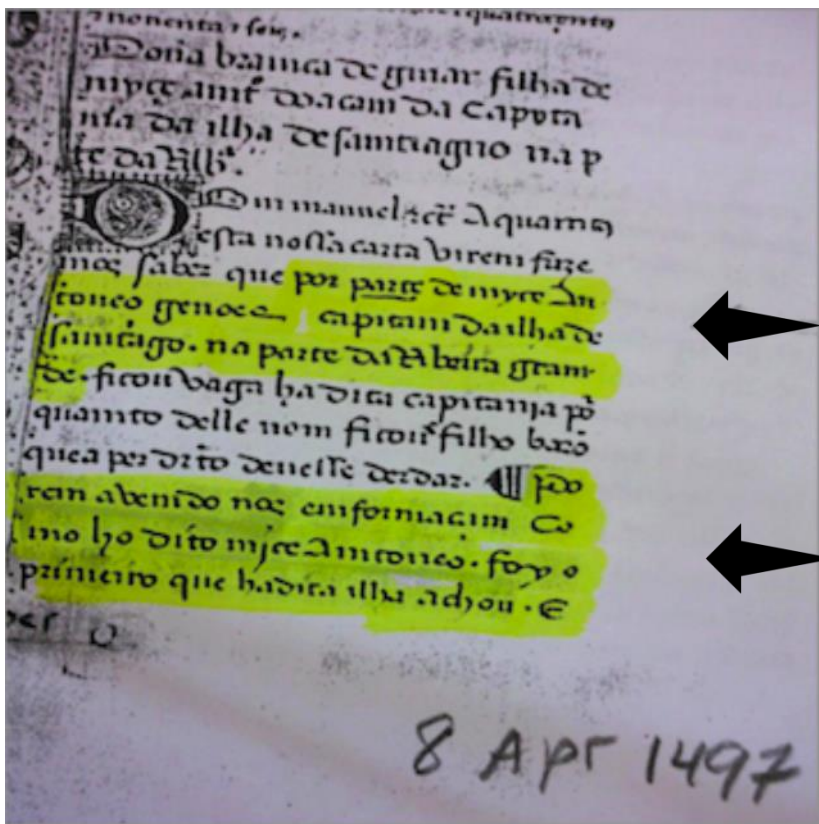 nonenta e seis.
Dona bramca de guiar filha de
myçe amt doacam da Capita
nia da ilha de samtiagno na p
te da Alb
Dom manuel etc Aquamtos
esta nossa carta virem faze
mos saber que por parte de myçe An
toneo genoes capitam da ilha de
samtiago. na parte da Ribeira gram
de. ficou vaga ha dita capitania por
quamto delle nom ficou filho baro
que a per dirto devesse derdar. po
rem avemdo nos emformaçam Co
mo ho dito myçe Amtoneo. foy o
primeiro que ha dita ilha achou. E
8 Apr 1497